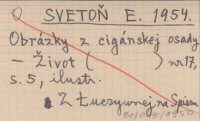 SVETOŇ E. 1954.
Obrázky z cigánskej osady
– Život ( ) nr 17,
s. 5, ilustr.
Z Łuczywnej na Spiszu